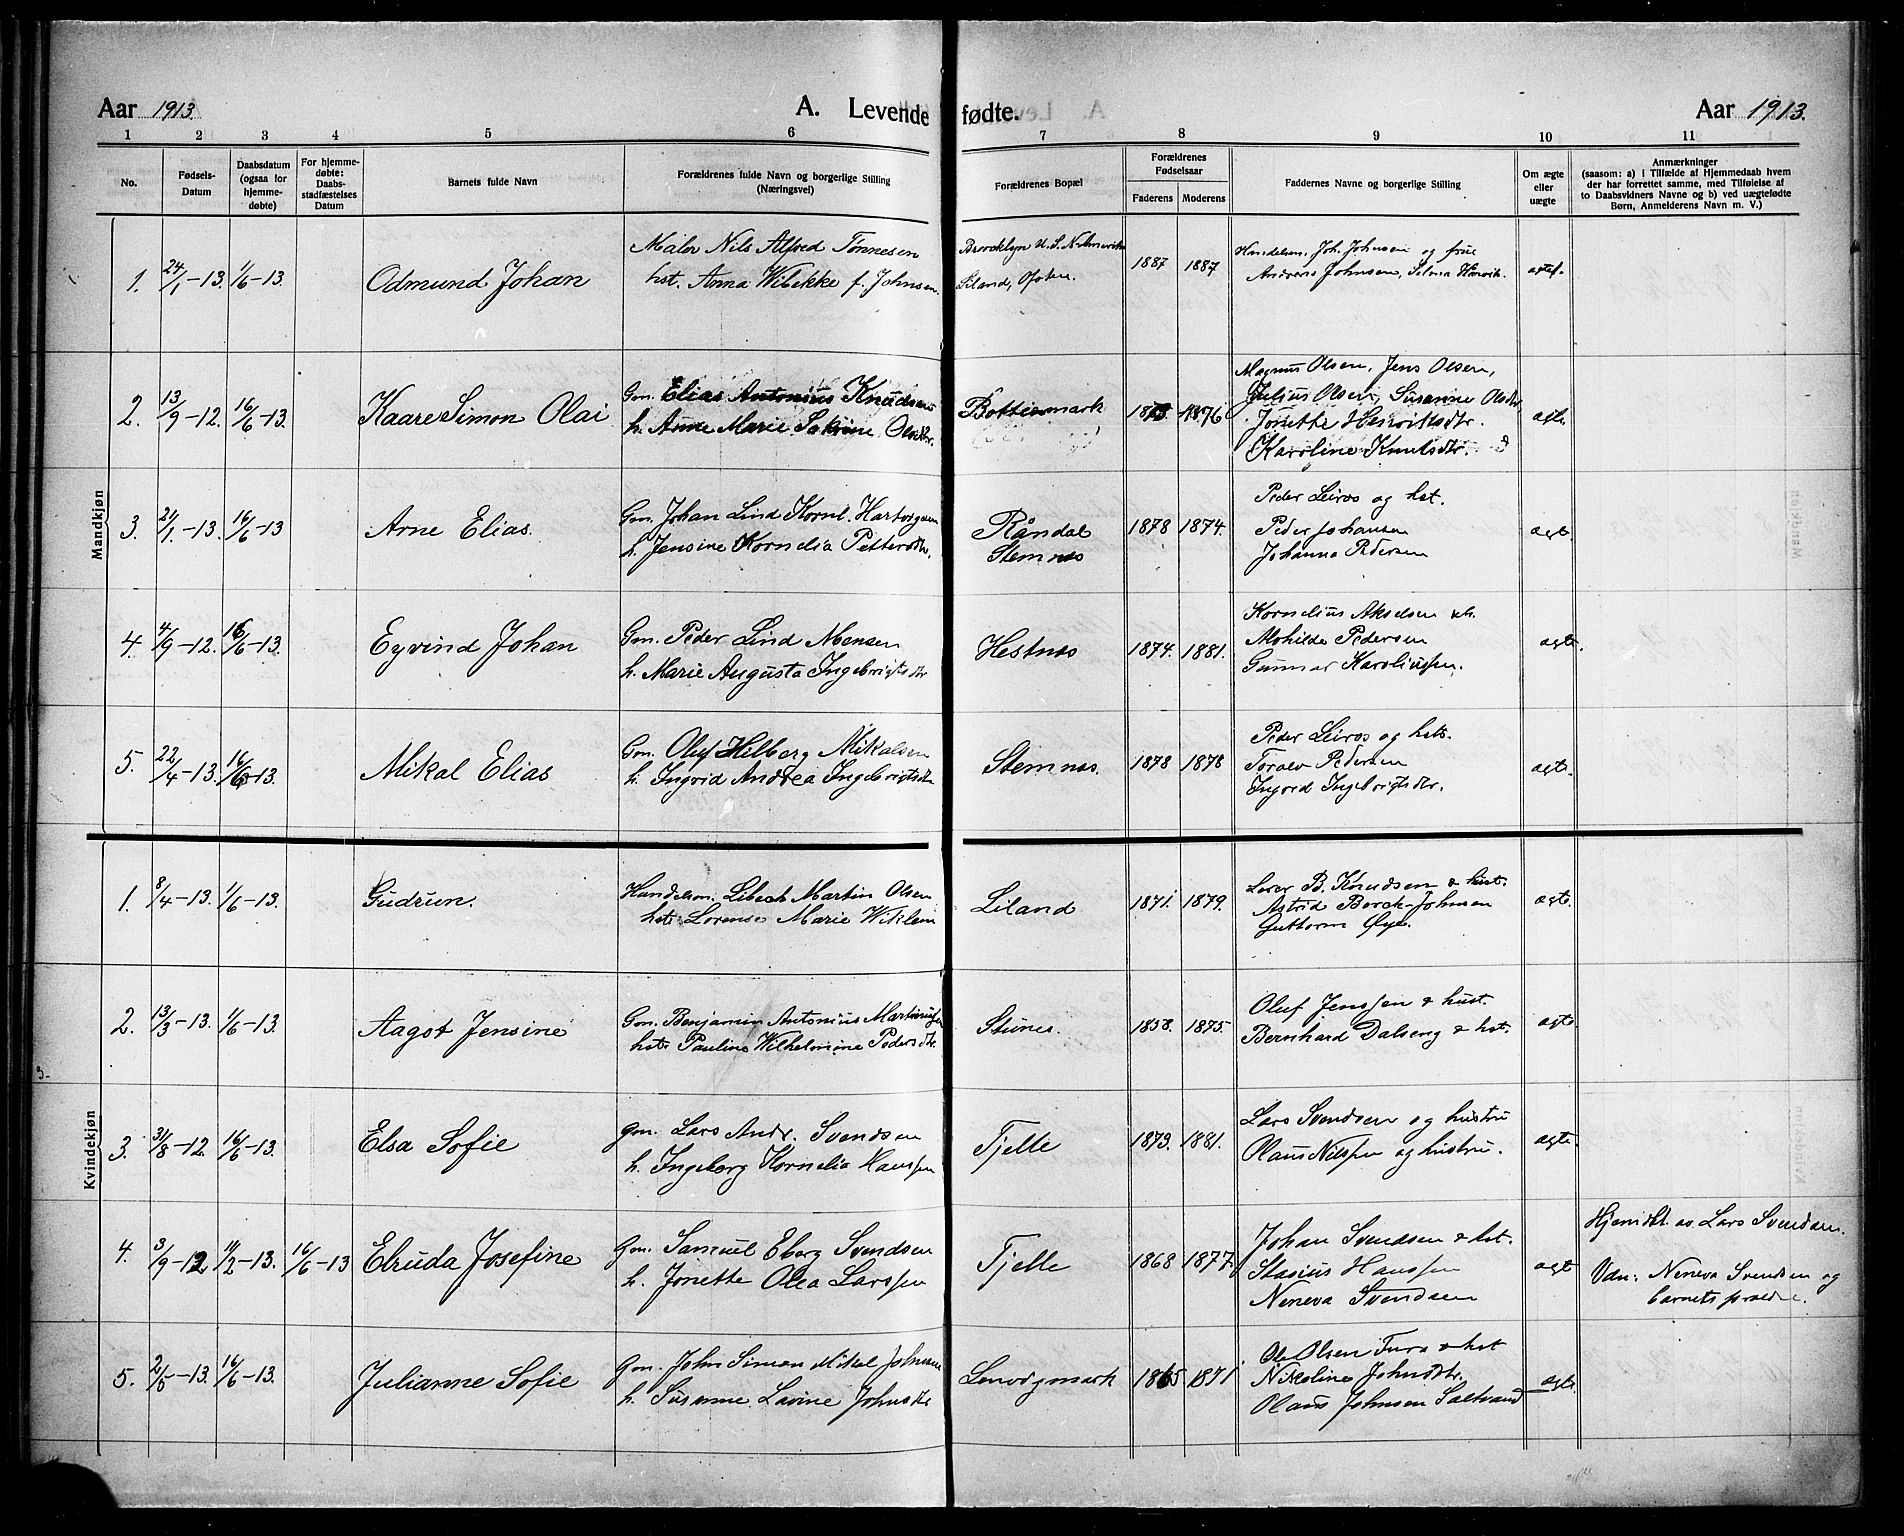 Aar 1913.
A. Levende fødte.
Aar 1913.
1 2 3 4 5 6 7 8 9 10 11
No.
Fødsels-
Datum
Daabsdatum
(ogsaa for
hjemme-
døbte)
For hjemme-
døbte:
Daabs-
stadfæstelses
Datum
Barnets fulde Navn
Forældrenes fulde Navn og borgerlige Stilling
(Næringsvei)
Forældrenes Bopæl
Forældrenes
Fødselsaar
Faderens Moderens
Faddernes Navne og borgerlige Stilling
Om ægte
eller
uægte
Anmærkninger
(saasom: a) i Tilfælde af Hjemmedaab hvem
der har forrettet samme, med Tilføielse af
to Daabsvidners Navne og b) ved uægtefødte
Børn, Anmelderens Navn m. V.)
Mandkjøn
1. 24/1-13. 1/6-13. Odmund Johan
Maler Nils Alfred Tønnesen
hst. Anna Wibekke f. Johnsen.
Brooklyn U.S.N.Amerika
Liland, Ofoten.
1887 1887
Handelsm. Joh. Johnsen og frue
Andreas Johnsen, Selma
2. 13/9-12. 16/6-13. Kaare Simon Olai
Gm. Elias Antonius Knudsen
h. Anne Marie Sakrine Olsdtr.
Bottenmark
1876
Magnus Olsen, Jens Olsen,
Julius Olsen, Susanne Olsdtr
Jonette Henriksdtr.
Karoline Knutsdtr.
ægte
3. 21/1-13. 16/6-13 Arne Elias.
Gm. Johan Lind Kornl. Hartvigsen
h. Jensine Kornelia Pettersdtr.
Råndal
Stemnæs
1878 1874.
Peder Leiros og hst.
Peder Johansen
Johanna Pedersen
ægte
4. 4/9-12. 16/6-13. Eyvind Johan
Gm. Peder Lind Monsen
h. Marie Augusta Ingebrigtsdtr
Hestnæs
1874. 1881.
Kornelius Akselsen &h.
Mohilde Pedersen
Gunnar Karoliussen.
ægte.
5. 22/4-13. 16/6-13. Mikal Elias
Gm. Oluf Hilberg Mikalsen
h. Ingvid Andrea Ingebrigtsdtr
Stemnæs.
1878 1878
Peder Leiros og hst.
Toralv Pedersen
Ingvid Ingebrigtsdtr.
ægte.
Kvindekjøn
1. 8/4-13. 1/6-13. Gudrun.
Handelsm. Libech Martin Olsen
hst. Lorense Marie Wiklem
Liland
1871. 1879.
Lærer B. Knudsen & hust.
Astrid Borch-Johnsen
Guttorm Øye.
ægte.
2. 13/3-13. 1/6-13. Aagot Jensine
Gm. Benjamin Antonius Martinusen
hst. Pauline Wilhelmine Pedersdtr.
Stunes.
1858. 1875.
Oluf Jenssen & hust.
Bernhard Dalseng & hst.
ægte.
3. 31/8-12. 16/6-13. Elsa Sofie
Gm. Lars Andr. Svendsen
h. Ingeborg Kornelia Hanssen
Tjelle
1873. 1881.
Lars Svendsen og hustru
Olaus Nilssen og hustru.
ægte.
4. 3/9-12 11/2-13. 16/6-13 Elruda Josefine
Gm. Samuel Eberg Svendsen
h. Jonette Olea Larssen
Tjelle
1868 1877
Johan Svendsen & hst.
Stasius Hanssen
Neneva Svendsen
ægt
Hjemdbt. av Lars Svendsen.
Vdn: Neneva Svendsen og
barnets forældre.
5. 2/5-13. 16/6-13. Julianne Sofie
Gm. John Simon Mikal Johnsen
h. Susanne Lavine Johnsdtr
Lenvigmark
1865 1871
Ole Olsen Fura & hst
Nikoline Johnsdtr.
Olaus Johnsen Saltvand
ægte.